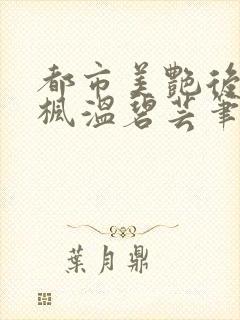 都市美艷後
楓溫碧芸筆
葉月鼎